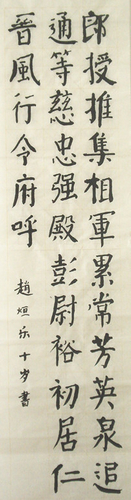 郎授推集相軍累常芳英泉追
通等慈忠强殿彭尉裕初居仁
晋風行令府呼
趙烜乐十岁書